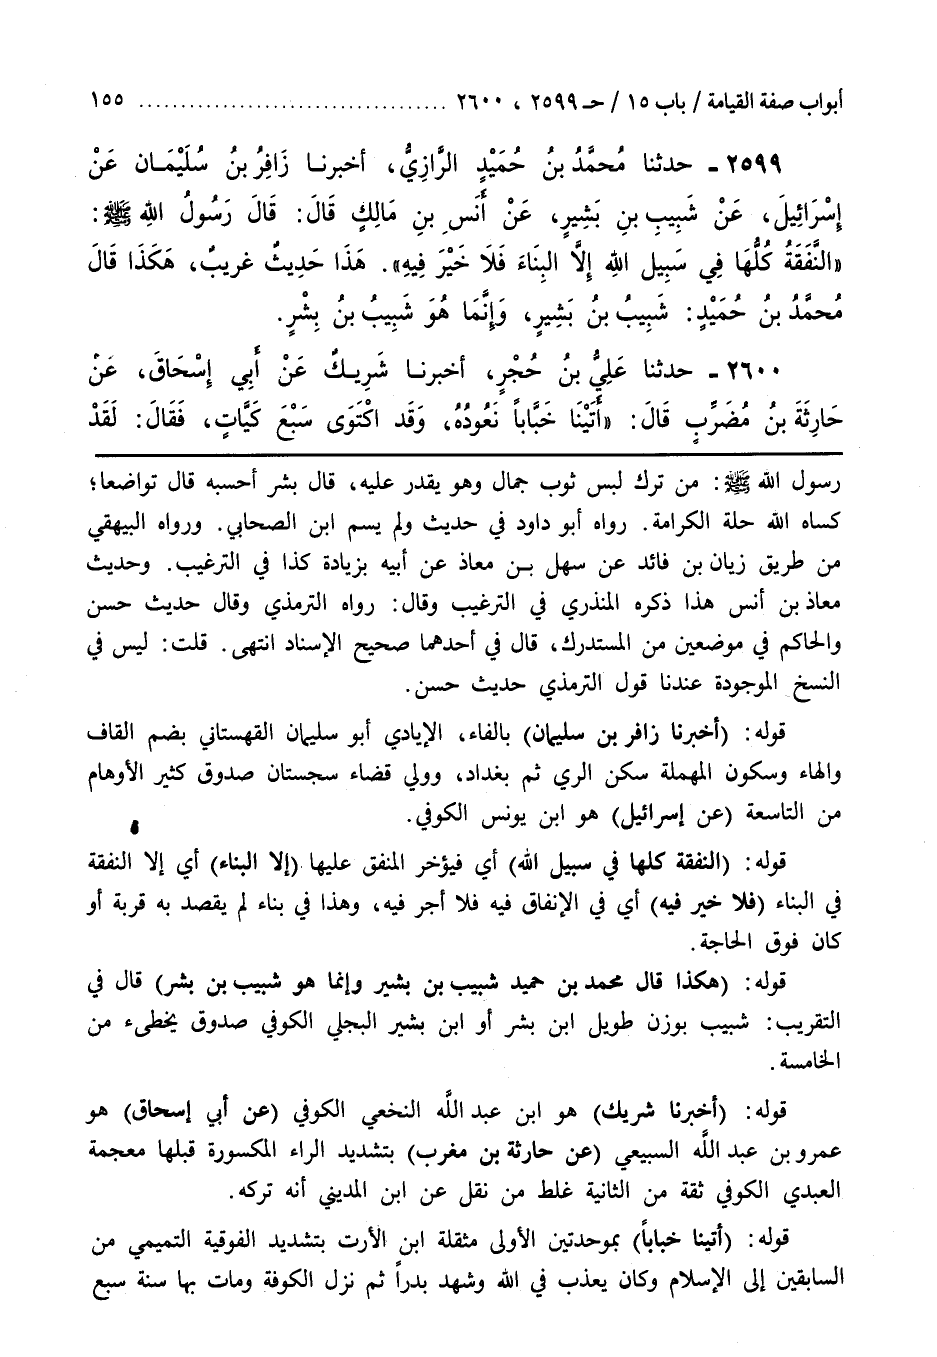 أبواب صفة القيامة / باب ١٥ / حـ ٢٥٩٩ ، ٢٦٠٠ ..................................... ١٥٥
٢٥٩٩ ـ حدثنا مُحمَّدُ بنُ حُمَيْدٍ الرَّازِيُّ، أخبرنـا زَافِرُ بنُ سُلَيْمَـان عَنْ
إِسْرَائِيلَ، عَنْ شَبِيبِ بنِ بَشِيرٍ، عَنْ أَنَسِ بنِ مَالِكٍ قَالَ: قَالَ رَسُولُ اللهِ ﷺ:
«النَّفَقَةُ كُلُّهَا فِي سَبِيلِ اللهِ إلَّا البِنَاءَ فَلَا خَيْرَ فِيهِ». هَذَا حَدِيثٌ غريبٌ، هَكَذَا قالَ
مُحمَّدُ بنُ حُمَيْدٍ: شَبِيبُ بنُ بَشِيرٍ، وَإِنَّمَا هُوَ شَبِيبُ بنُ بِشْرٍ.
٢٦٠٠ ـ حدثنا عَلِيُّ بنُ حُجْرٍ، أخبرنـا شَرِيـكٌ عَنْ أَبِي إِسْحَاقَ، عَنْ
حَارِثَةَ بنُ مُضَرِّبٍ قَالَ: «أَتَيْنَا خَبَّاباً نَعُودُهُ، وَقَد اكْتَوَى سَبْعَ كَيَّاتٍ، فَقَالَ: لَقَدْ
رسول الله ﷺ: من ترك لبس ثوب جمال وهو يقدر عليه، قال بشر أحسبه قال تواضعا؛
كساه الله حلة الكرامة. رواه أبو داود في حديث ولم يسم ابن الصحابي. ورواه البيهقي
من طريق زيان بن فائد عن سهل بـن معاذ عن أبيه بزيادة كذا في الترغيب. وحديث
معاذ بن أنس هذا ذكره المنذري في الترغيب وقال: رواه الترمذي وقال حديث حسن
والحاكم في موضعين من المستدرك، قال في أحدهما صحيح الإسناد انتهى. قلت: ليس في
النسخ الموجودة عندنا قول الترمذي حديث حسن.
قوله: (أخبرنا زافر بن سليمان) بالفاء، الإيادي أبو سليمان القهستاني بضم القاف
والهاء وسكون المهملة سكن الري ثم بغداد، وولي قضاء سجستان صدوق كثير الأوهام
من التاسعة (عن إسرائيل) هو ابن يونس الكوفي.
قوله: (النفقة كلها في سبيل الله) أي فيؤخر المنفق عليها (إلا البناء) أي إلا النفقة
في البناء (فلا خير فيه) أي في الإنفاق فيه فلا أجر فيه، وهذا في بناء لم يقصد به قربة أو
كان فوق الحاجة.
قوله: (هكذا قال محمد بن حميد شبيب بن بشير وإنما هو شبيب بن بشر) قال في
التقريب: شبيب بوزن طويل ابن بشر أو ابن بشير البجلي الكوفي صدوق يخطىء من
الخامسة.
قوله: (أخبرنا شريك) هو ابن عبد اللَّه النخعي الكوفي (عن أبي إسحاق) هو
عمرو بن عبد اللَّه السبيعي (عن حارثة بن مغرب) بتشديد الراء المكسورة قبلها معجمة
العبدي الكوفي ثقة من الثانية غلط من نقل عن ابن المديني أنه تركه.
قوله: (أتينا خباباً) بموحدتين الأولى مثقلة ابن الأرت بتشديد الفوقية التميمي من
السابقين إلى الإسلام وكان يعذب في الله وشهد بدراً ثم نزل الكوفة ومات بها سنة سبع